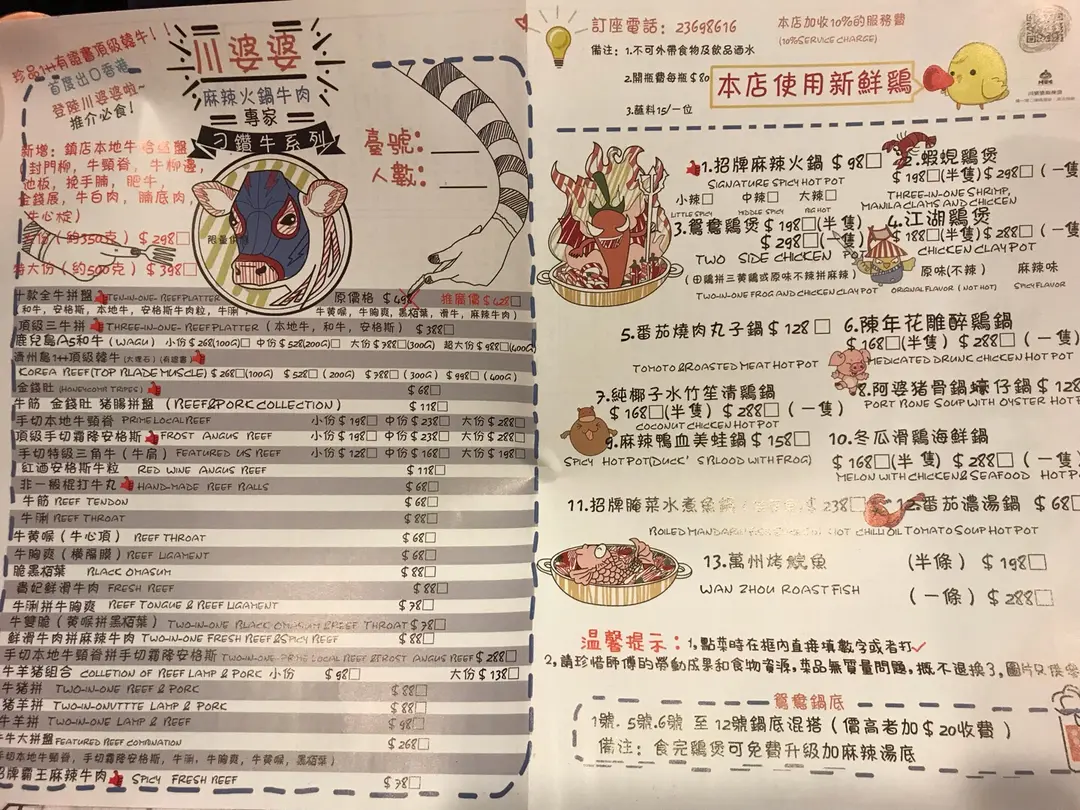 珍品1++有證書頂級韓牛！
首度出口香港
登陸川婆婆啦~
推介必食！
川婆婆
麻辣火鍋牛肉
專家
刁鑽牛系列
臺號：
人數：
新增：鎮店本地牛
封門柳，牛頸脊，牛柳邊，
池板，挽手腩，肥牛，
金錢展，牛白肉，腩底肉，
牛心椗）
（約350克）$298□
特大份（約500克）$398□
十款全牛拼盤 TEN-IN-ONE BEEFPLATTER 原價格 $498 推廣價 $428□
（和牛，安格斯，本地牛，安格斯牛肉粒，牛脷 牛黃喉，牛胸爽，黑栢葉，滑牛，麻辣牛肉）
頂級三牛拼 THREE-IN-ONE BEEFPLATTER（本地牛，和牛，安格斯）$388□
鹿兒島A5和牛（WAGU）小份 $268□(100G) 中份 $528□(200G) 大份 $788□(300G) 超大份 $988□(400G)
濟州島1++頂級韓牛（大理石）（有證書）
KOREA BEEF(TOP BLADE MUSCLE) $268□(100G) $528□(200G) $788□(300G) $998□(400G)
金錢肚（HONEYCOMB TRIPES）$68□
牛筋 金錢肚 豬腸拼盤（BEEF&PORK COLLECTION）$118□
手切本地牛頸脊 PRIME LOCAL BEEF 小份 $198□ 中份 $238□ 大份 $288□
頂級手切霜降安格斯 FROST ANGUS BEEF 小份 $198□ 中份 $238□ 大份 $288□
手切特級三角牛（牛肩）FEATURED US BEEF 小份 $128□ 中份 $168□ 大份 $198□
紅酒安格斯牛粒 RED WINE ANGUS BEEF $118□
非一般棍打牛丸 HAND-MADE BEEF BALLS $68□
牛筋 BEEF TENDON $68□
牛脷 BEEF THROAT $88□
牛黃喉（牛心頂）BEEF THROAT $68□
牛胸爽（橫膈膜）BEEF LIGAMENT $68□
脆黑栢葉 BLACK OMASUM $88□
貴妃鮮滑牛肉 FRESH BEEF $88□
牛脷拼牛胸爽 BEEF TONGUE & BEEF LIGAMENT $78□
牛雙脆（黃喉拼黑栢葉）TWO-IN-ONE BLACK OMASUM & BEEF THROAT $78□
鮮滑牛肉拼麻辣牛肉 TWO-IN-ONE FRESH BEEF&SPICY BEEF $88□
手切本地牛頸脊拼手切霜降安格斯 TWO-IN-ONE PRIME LOCAL BEEF &FROST ANGUS BEEF $288□
牛羊豬組合 COLLETION OF BEEF LAMP & PORK 小份 $98□ 大份 $138□
牛豬拼 TWO-IN-ONE BEEF & PORK $88□
豬羊拼 TWO-IN-ONVTTTE LAMP & PORK $88□
牛羊拼 TWO-IN-ONE LAMP & BEEF $98□
牛大拼盤 FEATURED BEEF COMBINATION $268□
手切本地牛頸脊，手切霜降安格斯，牛脷，牛胸爽，牛黃喉，黑栢葉）
招牌霸王麻辣牛肉 SPICY FRESH BEEF $78□
訂座電話：23698616
本店加收10%的服務費
(10%SERVICE CHARGE)
備注：1.不可外帶食物及飲品酒水
2.開瓶費每瓶$80
3.蘸料15/一位
本店使用新鮮鷄
1.招牌麻辣火鍋 $98□
SIGNATURE SPICY HOT POT
小辣□ 中辣□ 大辣□
LITTLE SPICY MIDDLE SPICY BIG HOT
2.蝦蜆鷄煲
$198□(半隻)$298□(一隻
THREE-IN-ONE SHRIMP,
MANILA CLAMS AND CHICKEN
3.鴛鴦鷄煲 $198□(半隻)
$298□(一隻
TWO SIDE CHICKEN POT
（田鷄拼三黃鷄或原味不辣拼麻辣）
TWO-IN-ONE FROG AND CHICKEN CLAY POT
4.江湖鷄煲
$188□(半隻)$288□(一隻
CHICKEN CLAY POT
原味(不辣) 麻辣味
ORIGINAL FLAVOR (NOT HOT) SPICY FLAVOR
5.番茄燒肉丸子鍋 $128□
TOMATO & ROASTED MEAT HOT POT
6.陳年花雕醉鷄鍋
$168□(半隻) $288□(一隻
MEDICATED DRUNK CHICKEN HOT POT
7.純椰子水竹笙清鷄鍋
$168□(半隻) $288□(一隻)
COCONUT CHICKEN HOT POT
8.阿婆豬骨鍋蠔仔鍋 $128
PORT BONE SOUP WITH OYSTER HOT P
9.麻辣鴨血美蛙鍋 $158□
SPICY HOT POT(DUCK' S BLOOD WITH FROG)
10.冬瓜滑鷄海鮮鍋
$168□(半隻) $288□(一隻)
MELON WITH CHICKEN & SEAFOOD HOT P
11.招牌腌菜水煮魚鍋 238□
BOILED MANDARIN HOT CHILI OIL
12.番茄濃湯鍋 $68□
TOMATO SOUP HOT POT
13.萬州烤鯇魚 （半條）$198□
WAN ZHOU ROAST FISH （一條）$288□
溫馨提示：1，點菜時在框內直接填數字或者打✓
2，請珍惜師傅的勞動成果和食物資源，菜品無質量問題，概不退換
鴛鴦鍋底
1號.5號.6號 至12號鍋底混搭（價高者加$20收費）
備注：食完鷄煲可免費升級加麻辣湯底